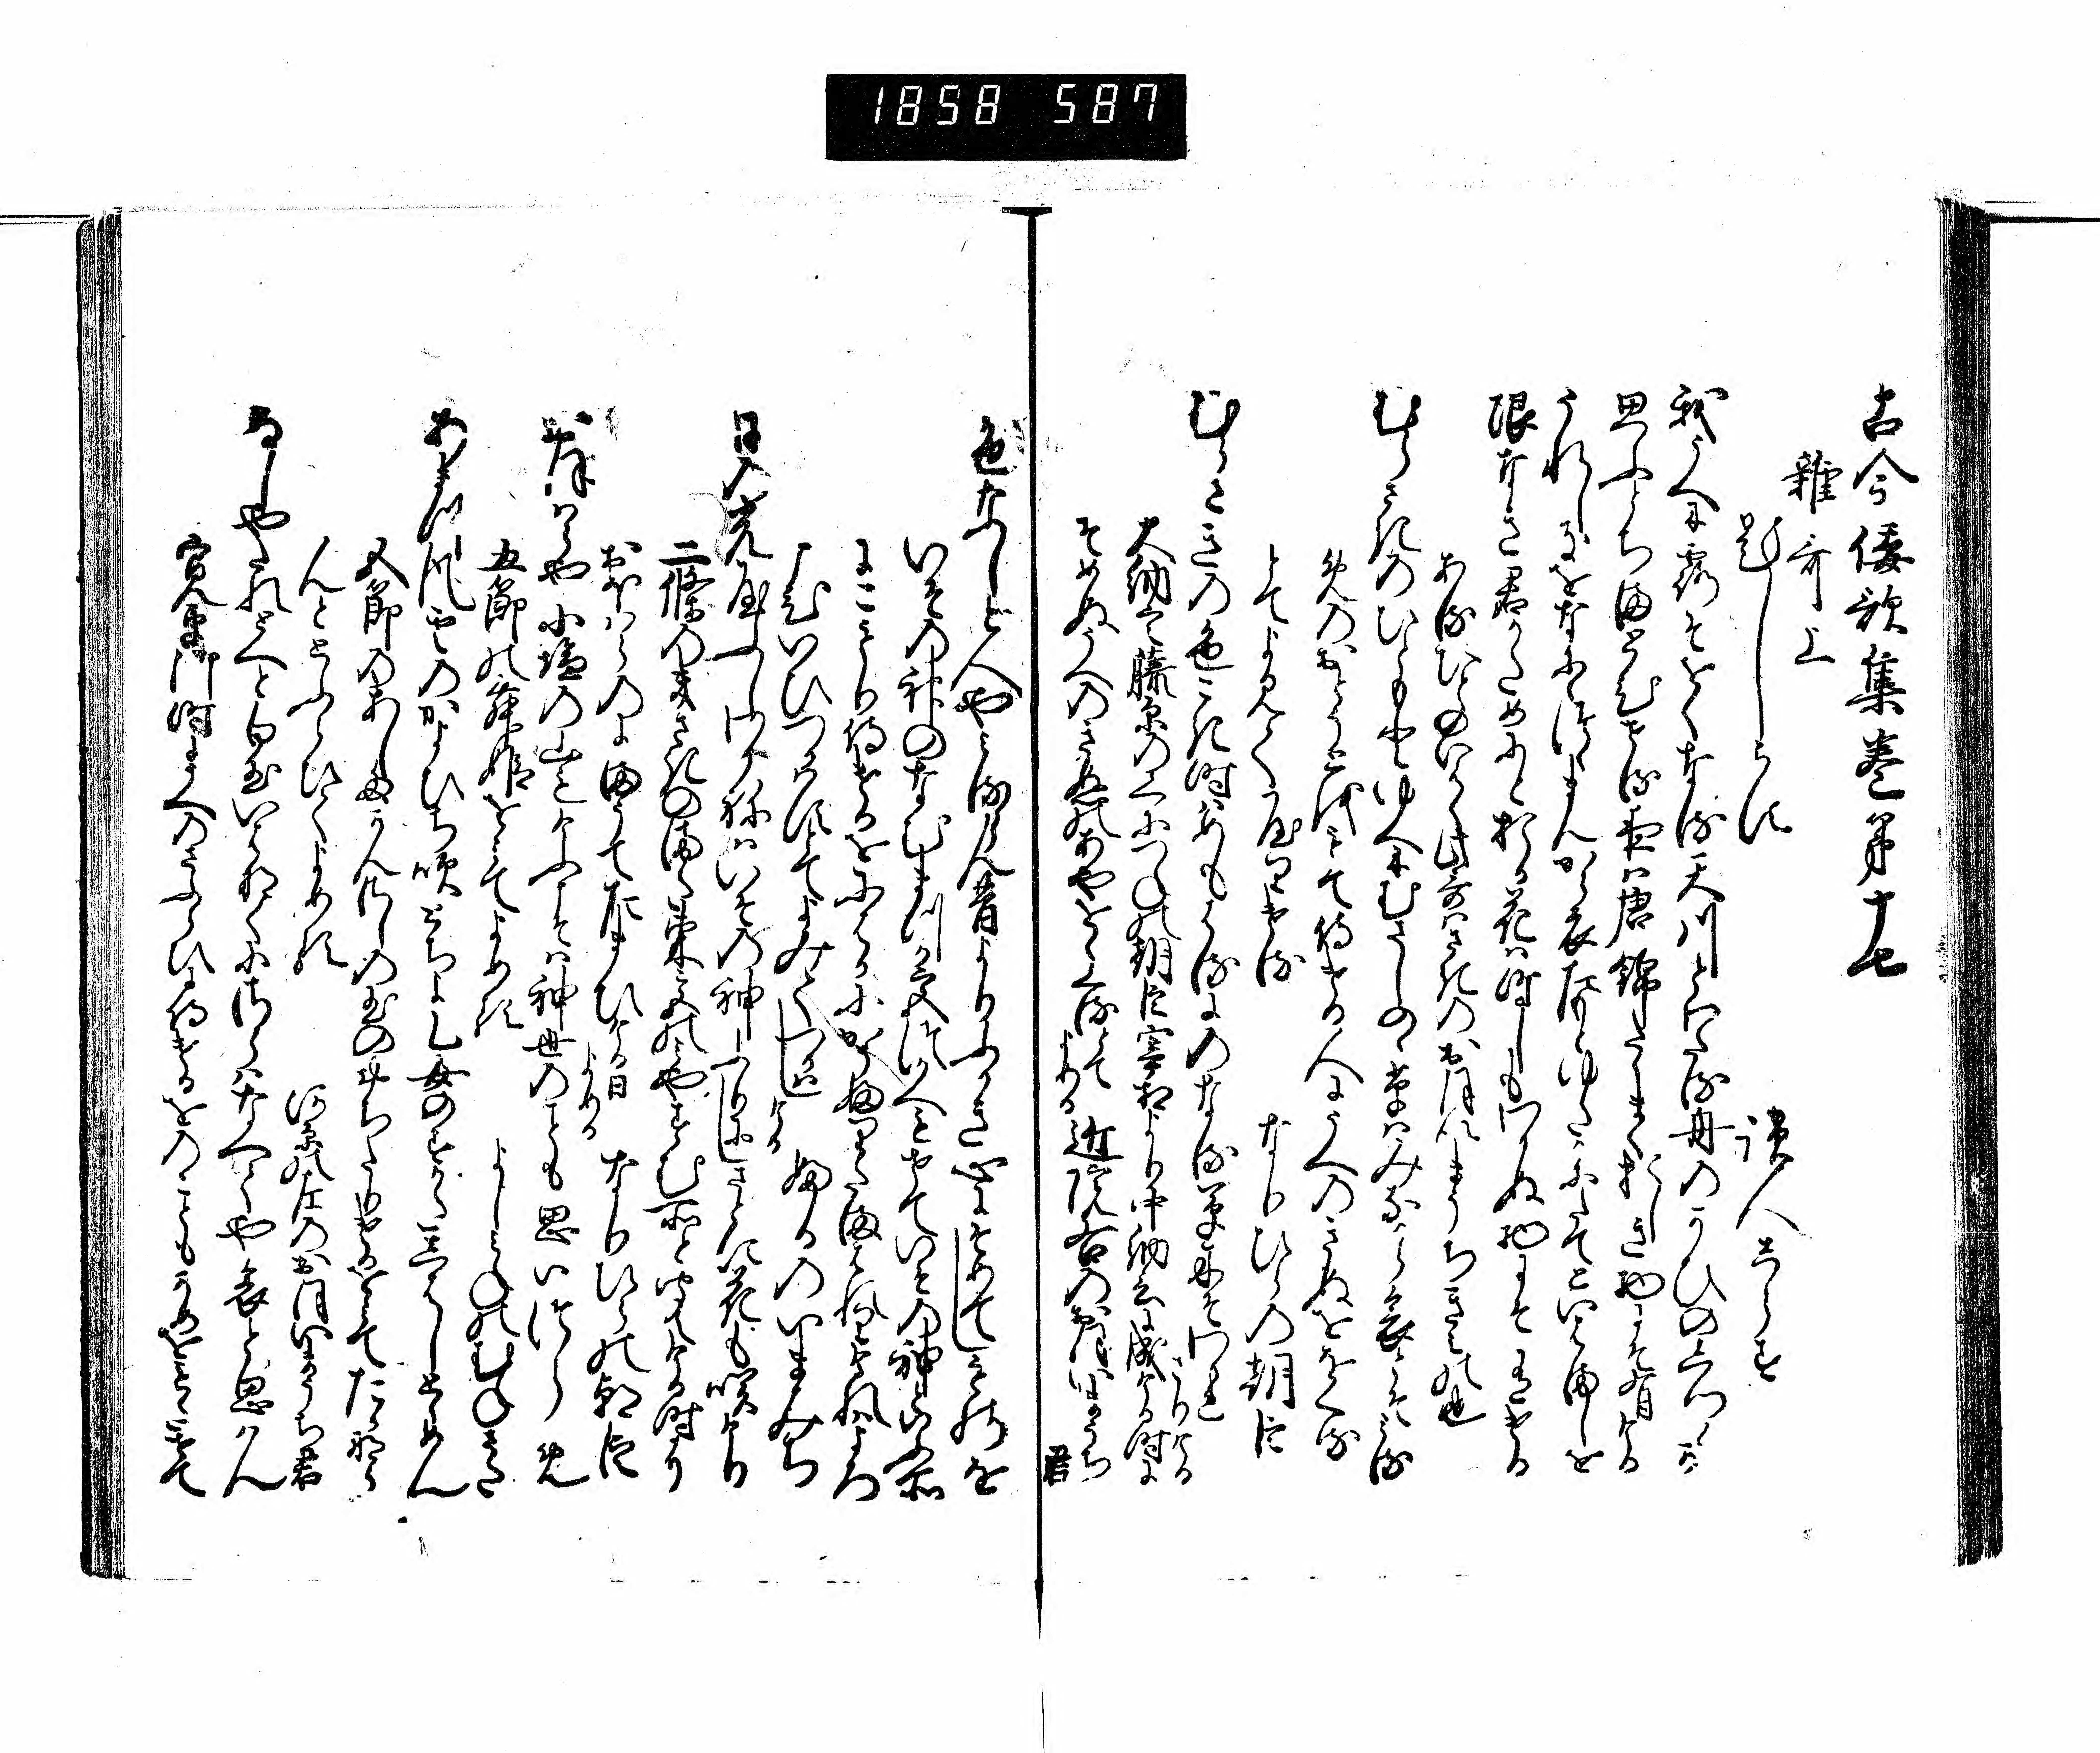 1858 587
古今倭歌集巻第十七
雑哥上
題しらす
読人しらす
我うへに露そをくなる天川とわたる舟のかひのしつくか
思ふとちまとゐせる夜は唐錦たゝまくおしき物にそ有ける
うれしきをなにゝつゝまんから衣たもとゆたかにたてといはましを
限なき君かためにとおる花は時しもわかぬ物にそ有ける
ある人のいはく此哥はさきのおほいまうちきみの也
むらさきのひともとゆへにむさしのゝ草はみなからあはれとそみる
めのおとうとを
もて侍ける人にうへのきぬをおくる
とてよみてやりける
なりひらの朝臣
むらさきの色こき時はめもはるに野なる草木そわかれさりける
大納言藤原のくにつねの朝臣宰相より中納言に成ける時に
そめぬうへのきぬのあやをくるとてよめる
近院右のおほいまうち君
色なしと人やみるらん昔よりふかき心にそめてしものを
いその神のなむまつか宮つかへもせていその神といふ所
にこもり侍けるをにはかにかうふり給はれりけれはよろ
こひいひつかはすとてよみてつかはしける
ふるのいまみち
日の光やふしわかねはいその神ふりにしさとに花も咲けり
二條のきさきのまた東宮のみやすむ所と申ける時に
おほはらのにまうてたまひける日よめる
なりひらの朝臣
大原や小塩の山もけふこそは神世のことも思ひ出らめ
五節の舞姫をみてよめる
よしみねのむねさた
あまつ風雲のかよひち吹とちよ乙女のすかたしはしとゝめん
五節のあしたにかんさしの玉のおちたりけるをみてたかなら
んととふらひてよめる
河原の左のおほいまうち君
ぬしやたれとへと白玉いはなくにさらはなへてや哀と思はん
寛平御時にうへのさふらひに侍けるをのこともかめをもたせて